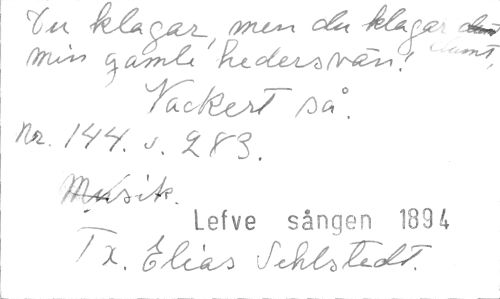 Du klagar, men du klagar dumt,
min gamle hedersvän!
Vackert så.
Nr. 144. s. 283.
Musik.
Lefve sången 1894
Tx. Elias Sehlstedt.